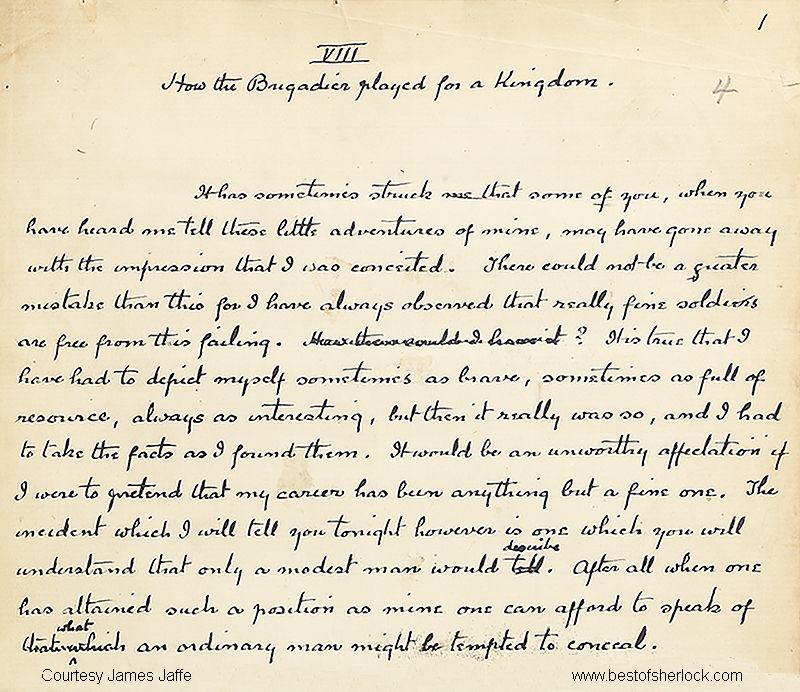 1
VIII
How the Brigadier played for a Kingdom.
4
It has sometimes struck me that some of you, when you
have heard me tell these little adventures of mine, may have gone away
with the impression that I was conceited. There could not be a greater
mistake than this for I have always observed that really fine soldiers
are free from this failing. How then could I have it? It is true that I
have had to depict myself sometimes as brave, sometimes as full of
resource, always as interesting, but then it really was so, and I had
to take the facts as I found them. It would be an unworthy affectation if
I were to pretend that my career has been anything but a fine one. The
incident which I will tell you tonight however is one which you will
describe
understand that only a modest man would tell. After all when one
has attained such a position as mine one can afford to speak of
what
which an ordinary man might be tempted to conceal.
Courtesy James Jaffe
www.bestofsherlock.com